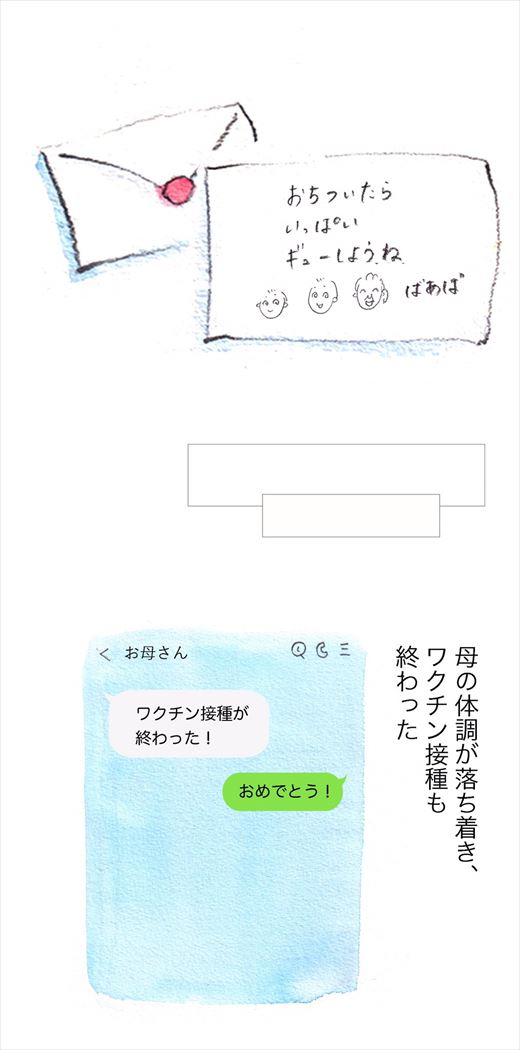 おちついたら
いっぱい
ギューしようね
ばあば
母の体調が落ち着き、
ワクチン接種も
終わった
お母さん
ワクチン接種が
終わった！
おめでとう！